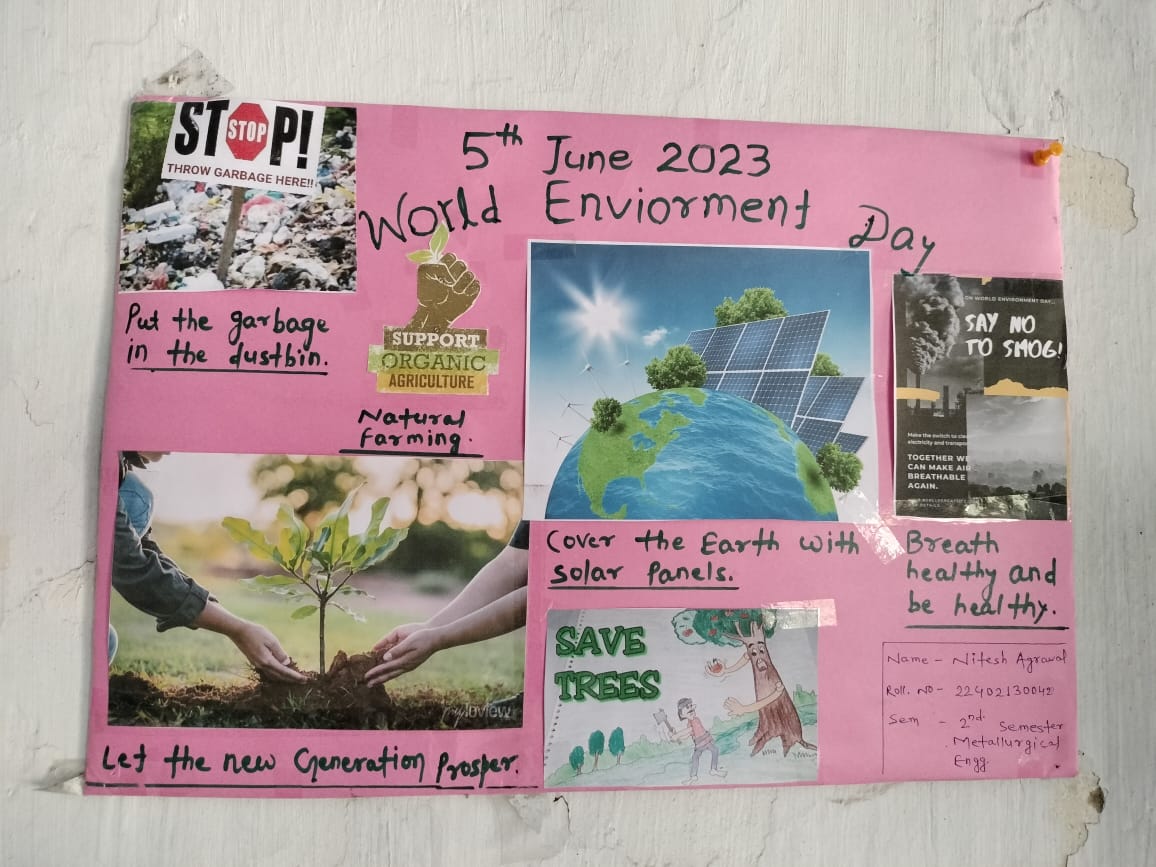 STOP!
STOP
THROW GARBAGE HERE!!
5th June 2023
World Enviorment Day
Put the garbage
in the dustbin.
SUPPORT
ORGANIC
AGRICULTURE
Natural
farming.
ON WORLD ENVIRONMENT DAY...
SAY NO
TO SMOG!
Make the switch to
electricity and
TOGETHER WE
CAN MAKE AIR
BREATHABLE
AGAIN.
Cover the Earth with
solar Panels.
Breath
healthy and
be healthy.
Let the new Generation Prosper.
SAVE
TREES
Name - Nitesh Agrawal
Roll. No - 22402130042
Sem - 2nd Semester
Metallurgical
Engg.